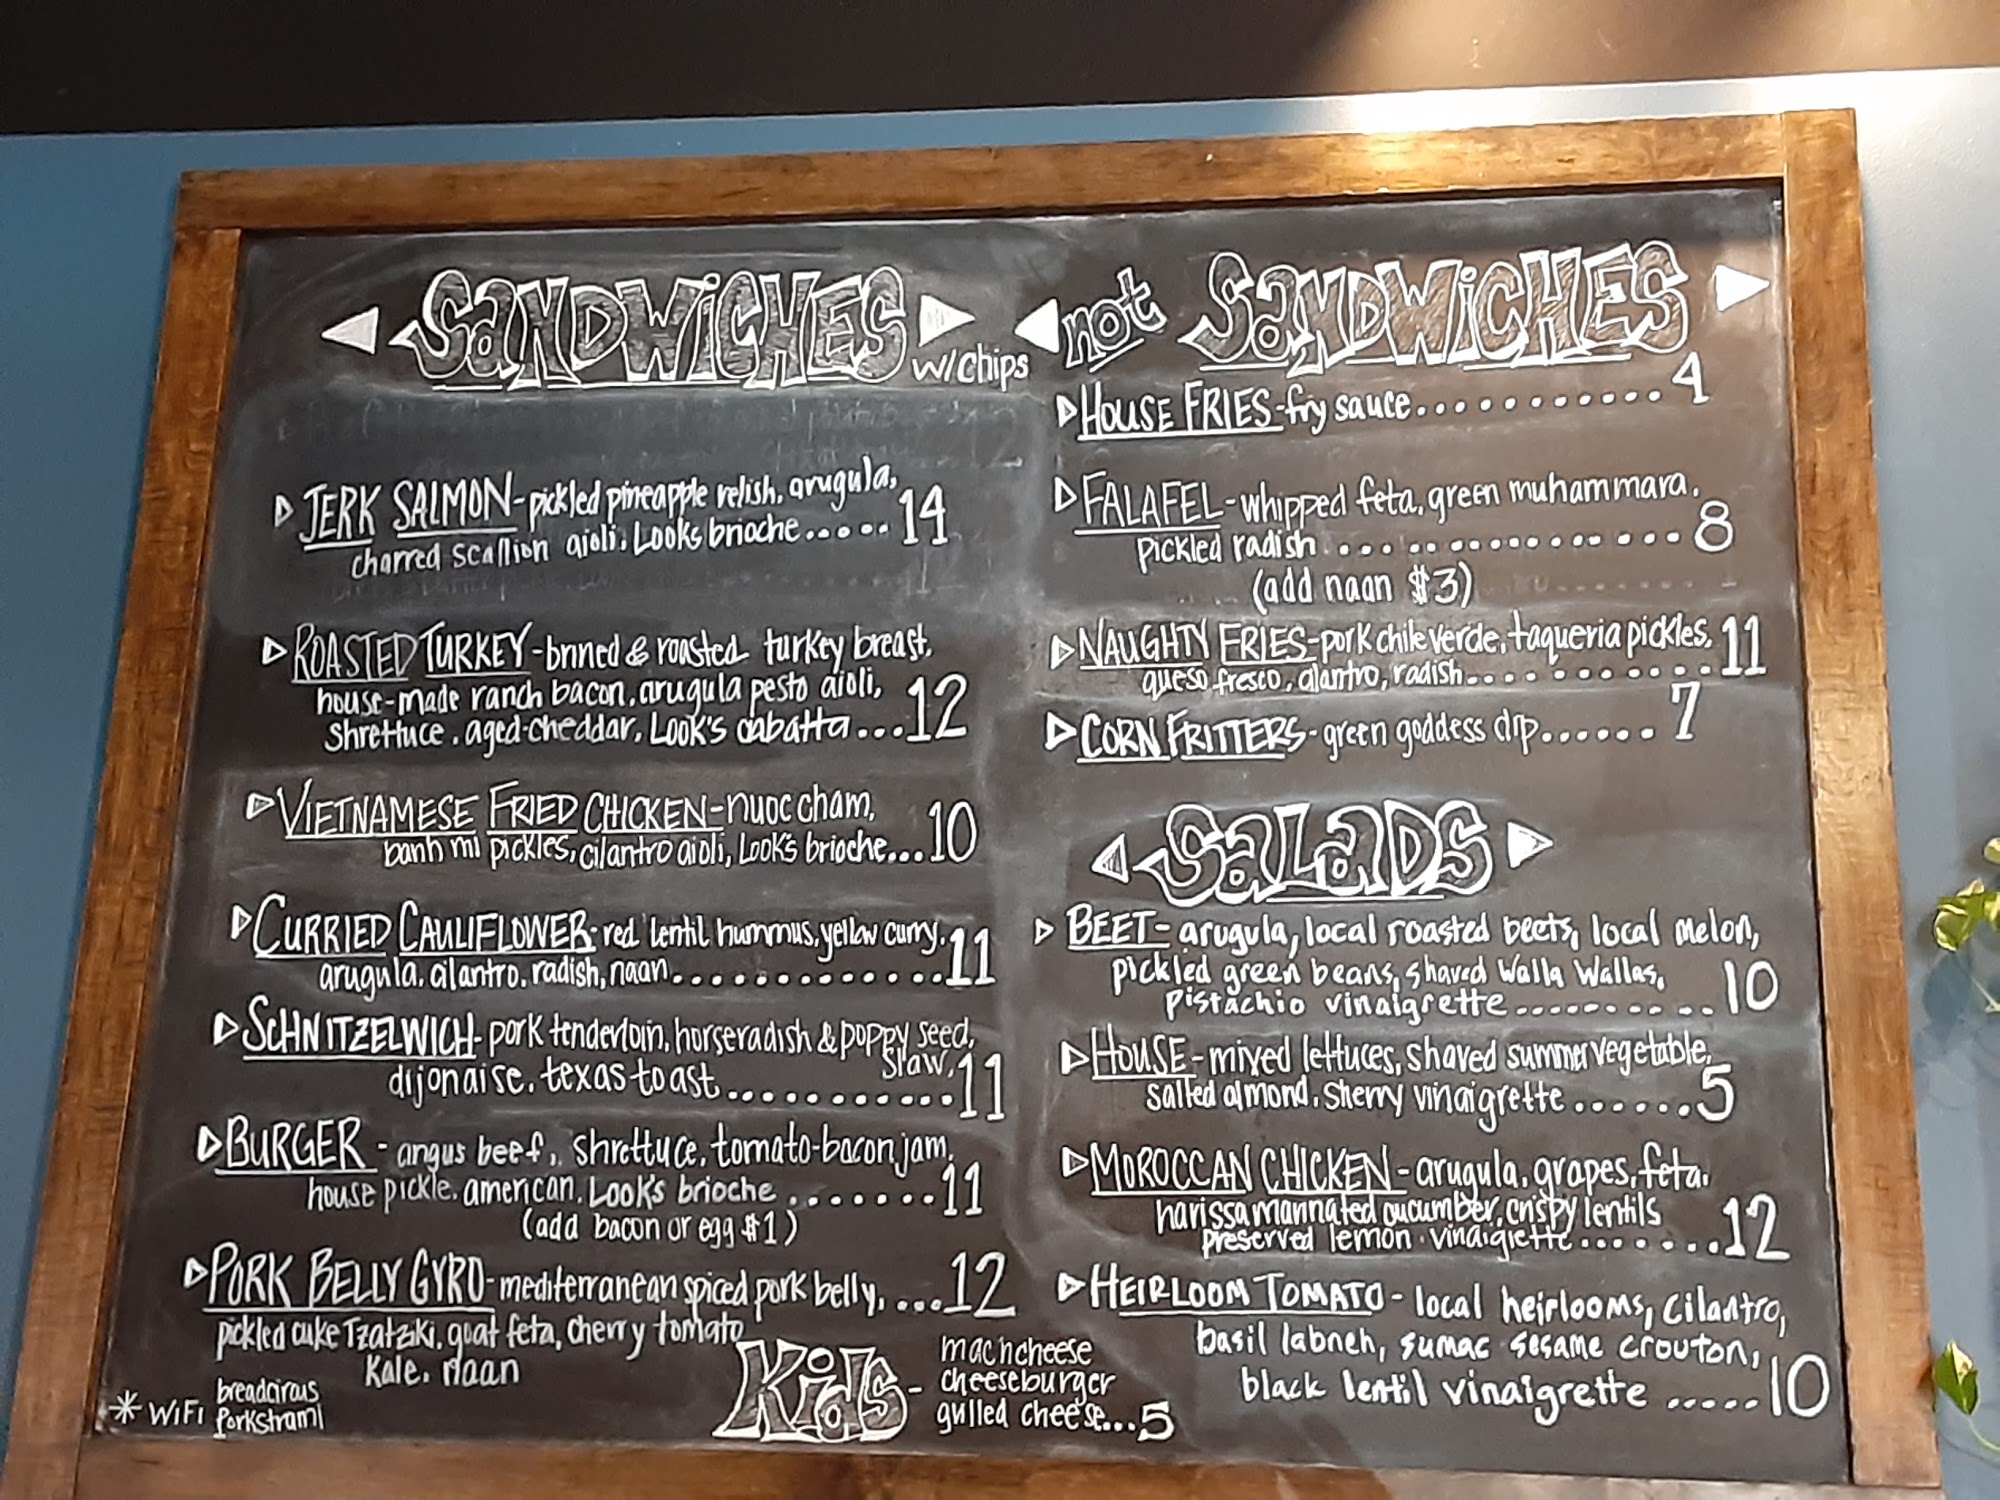 SANDWICHES
w/chips
JERK SALMON-pickled pineapple relish, arugula,
charred scallion aioli, Looks brioche.....14
ROASTED TURKEY-brined & roasted turkey breast,
house-made ranch bacon, arugula pesto aioli,
shrettuce, aged-cheddar, Look's ciabatta...12
VIETNAMESE FRIED CHICKEN-nuoc cham,
banh mi pickles, cilantro aioli, Look's brioche...10
CURRIED CAULIFLOWER-red lentil hummus, yellow curry,
arugula, cilantro, radish, naan.............11
SCHNITZELWICH-pork tenderloin, horseradish & poppy seed,
slaw,
dijonaise, texas toast...........11
BURGER - angus beef, shrettuce, tomato-bacon jam,
house pickle, american, Look's brioche.......11
(add bacon or egg $1)
PORK BELLY GYRO-mediterranean spiced pork belly, ...12
pickled cuke Tzatziki, goat feta, cherry tomato
Kale, naan
* WiFi breadcircus
porkstrami
Kids - mac n cheese
cheeseburger
grilled cheese...5
not SANDWICHES
HOUSE FRIES-fry sauce...........4
FALAFEL-whipped feta, green muhammara,
pickled radish..................8
(add naan $3)
NAUGHTY FRIES-pork chile verde, taqueria pickles,
queso fresco, cilantro, radish..........11
CORN FRITTERS-green goddess dip......7
SALADS
BEET- arugula, local roasted beets, local melon,
pickled green beans, shaved Walla Wallas,
pistachio vinaigrette..........10
HOUSE-mixed lettuces, shaved summer vegetable,
salted almond, sherry vinaigrette.......5
MOROCCAN CHICKEN-arugula, grapes, feta,
harissa marinated cucumber, crispy lentils
preserved lemon vinaigrette.......12
HEIRLOOM TOMATO - local heirlooms, cilantro,
basil labneh, sumac sesame crouton,
black lentil vinaigrette .....10